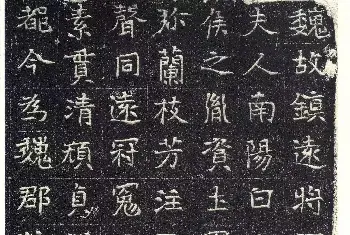 魏故鎮遠將
夫人南陽白
侯之胤資土
弥蘭枝芳注
聲同遠冠冤
素貫清貞
能今為魏郡